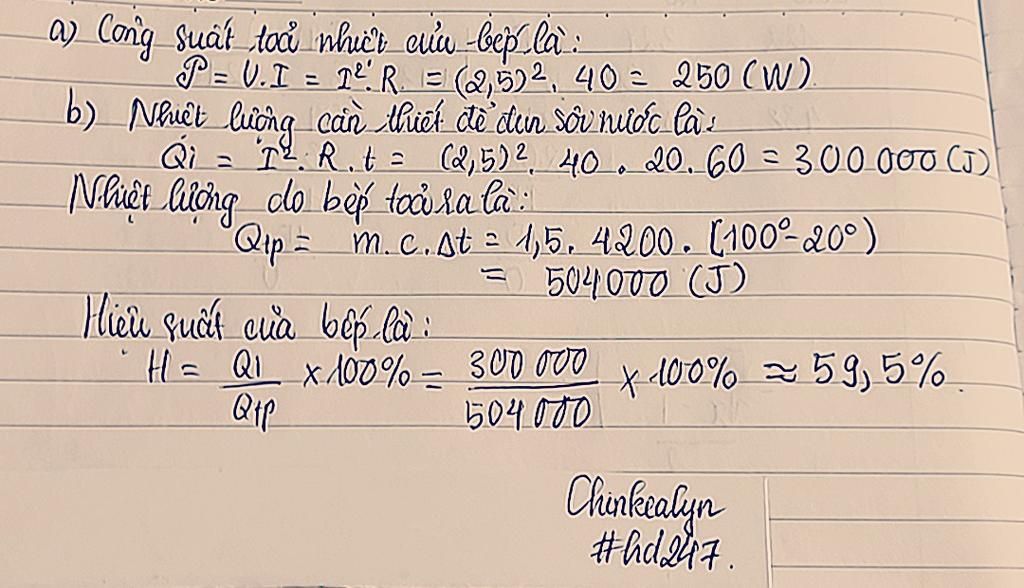 a) Công suất toả nhiệt của bếp là:
P = U.I = I². R. = (2,5)². 40 = 250 (W)
b) Nhiệt lượng cần thiết để đun sôi nước là:
Qi = I². R. t = (2,5)². 40 . 20. 60 = 300 000 (J)
Nhiệt lượng do bếp toả ra là:
Qtp = m. c. Δt = 1,5. 4200. [100° - 20°)
= 504000 (J)
Hiệu suất của bếp là:
H = Qi/Qtp × 100% = 300 000/504 000 × 100% ≈ 59,5%.
Chinkealyn
#hd247.